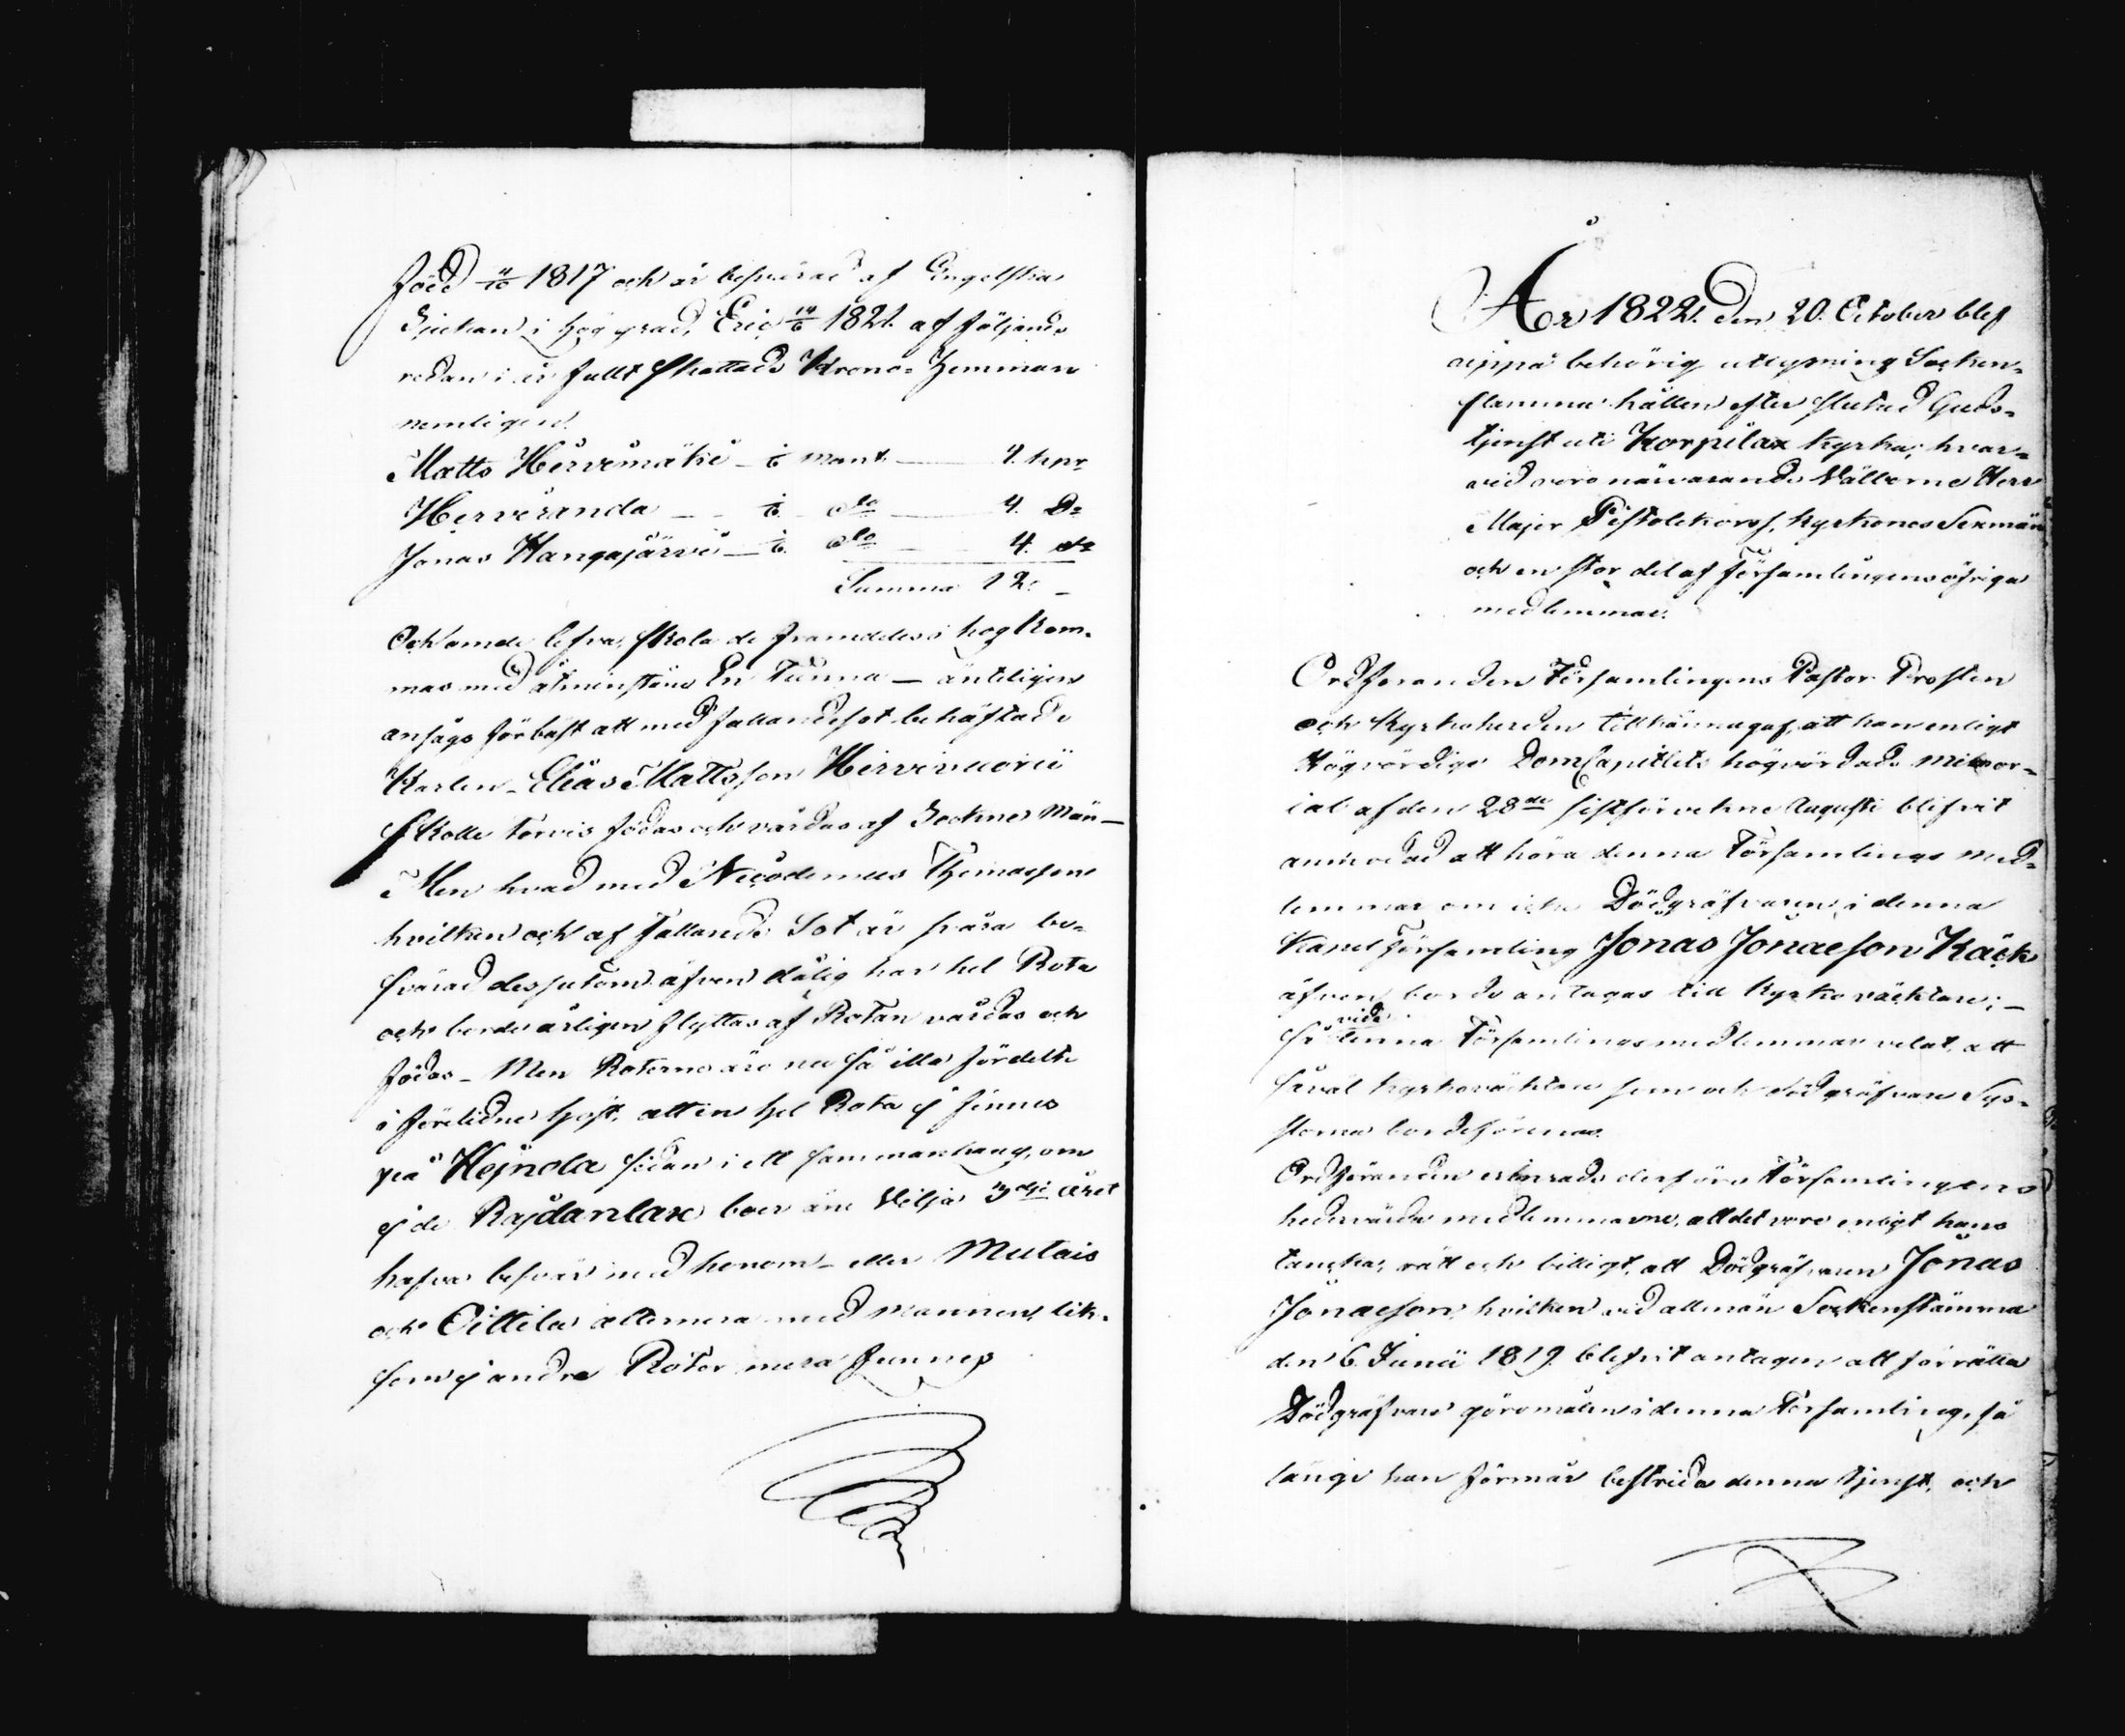 Född 11/10 1817 och är besvärad af Engelska
Sjukan i hög grad, Eric 14/6 1821. af följande
redan i år fullt skattade Krono-Hemman
nemligen.
Matts Hirvimäki – 1/6 Mant. — 4. kpr
Hirviranda – – 1/6. do — 4. Do
Jonas Kangasjärvi – 1/6. do — 4. do
Summa 12. –
Och om de lefva, skola de framdeles i hog kom-
mas med åtminstone En Tunna – änteligen
ansågs för bäst att med fallandesot behäftade
Karlen – Elias Mattsson Hirvivuori
skolle torvis födas och vårdas af Sockne Män –
Men hvad med Nicodemus Thomasson
hvilken och af Fallande Sot är svåra be-
svärad dessutom äfven dålig har hel Rota
och borde årligen flyttas af Rotan vårdas och
födas – Men Roterne äro nu så illa fördelte
i förledne höst, att en hel Rota ej finnes
på Hejnola sidan i ett sammanhang, om
ej de Rajdanlax boer äni vilja 3dje året
hafva besvär med honom – eller Mutais
och Oittila alternera med mannen, lik-
som ej andra Rotor mera funnes
År 1822. den 20. October blef
uppå behörig utlysning Socken-
stämma hållen efter slutad Guds-
tjenst uti Korpilax Kyrka; hvar-
vid voro närvarande Välborne Herr
Major Pistolekors, Kyrkones Sexmän
och en stor del af Församlingens öfriga
medlemmar.
Ordföranden Församlingens Pastor Prosten
och Kyrkoherden tillkännagaf, att han enligt
Högvördige DomCapitlets högvördade memor-
ial af den 28de sistförvekne Augusti blifvit
anmodad att höra denna Församlings med-
lemmar om icke Dödgräfvaren i denna
Kapell Församling Jonas Jonasson Käck
äfven borde antagas till Kyrkoväktare; –
vida
så denna Församlings medlemmar velat, att
såväl Kyrkoväktare som och dödgräfvare Sys-
slorna borde förenas.
Ordföranden erinrade derföre Församlingens
hedervärda medlemmarne, att det vore enligt hans
tanckar rätt och billigt, att Dödgräfvaren Jonas
Jonasson, hvilken vid allmän Sockenstämma
den 6. Junii 1819 blifvit antagen att förrätta
Dödgräfvare göromålen i denna Församling, så
länge han förmår bestrida denna tjenst, och